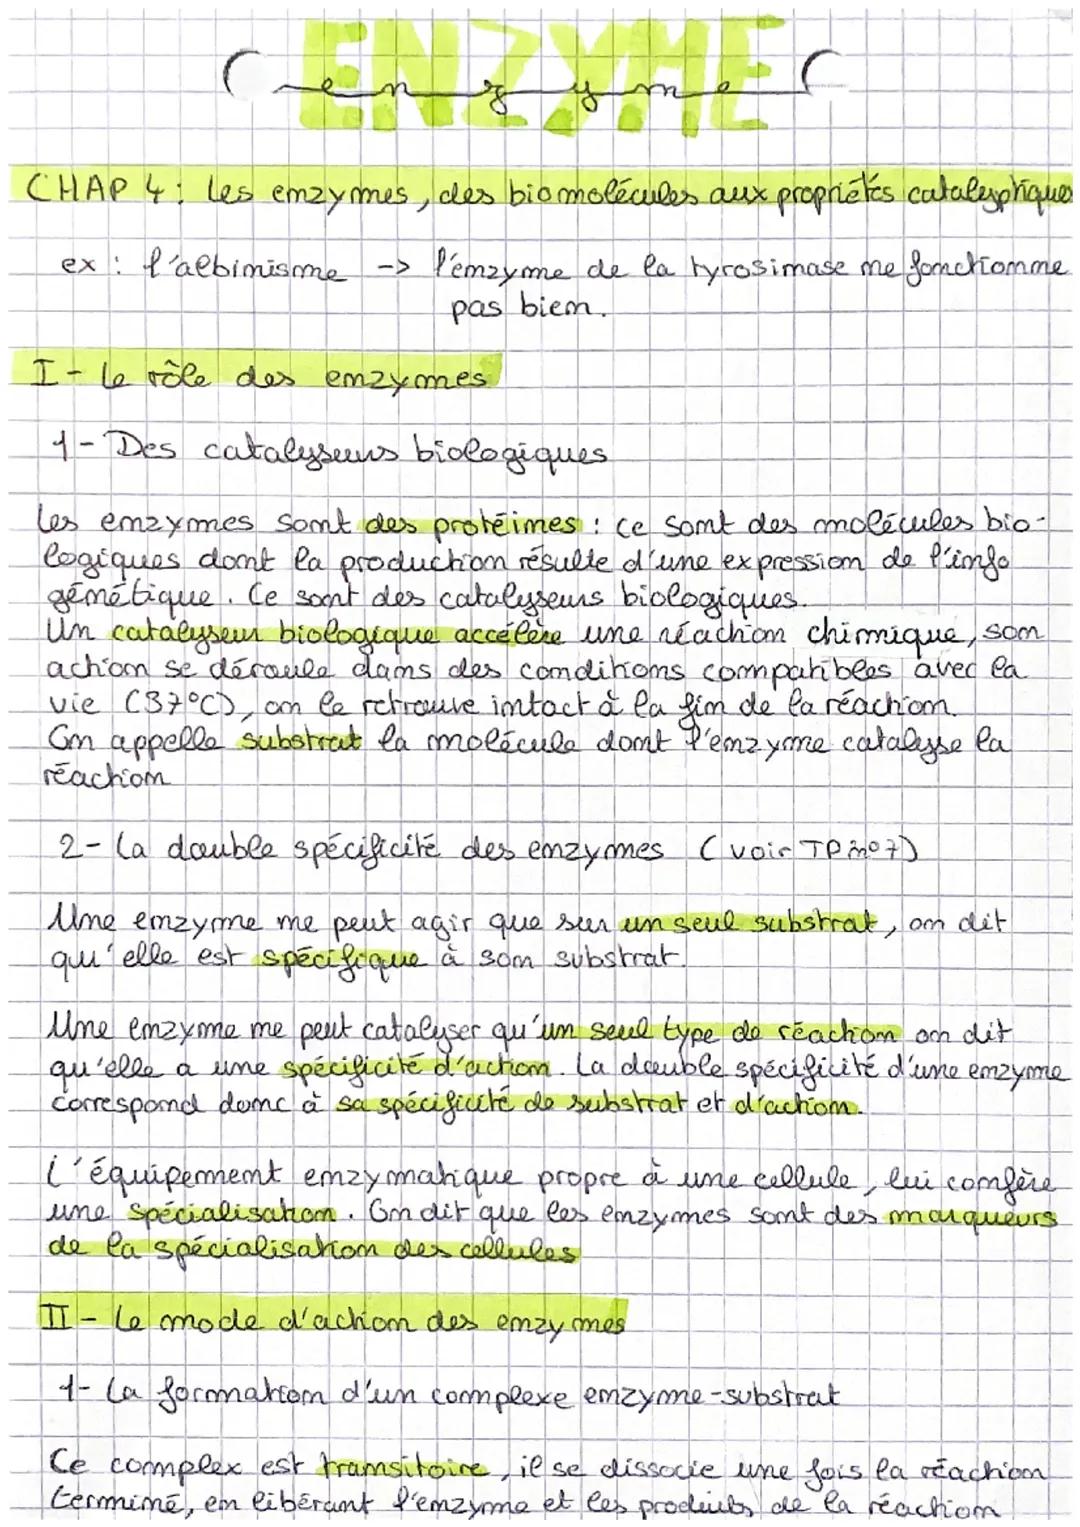 ENZYME
enzyme
CHAP 4 : Les enzymes, des biomolécules aux propriétés catalyphiques
ex : l'albinisme -> l'enzyme de la tyrosinase ne fonctionne
pas bien.
I - Le rôle des enzymes
1 - Des catalyseurs biologiques
Les enzymes sont des protéines : ce sont des molécules bio-
logiques dont la production résulte d'une expression de l'info
génétique. Ce sont des catalyseurs biologiques.
Un catalyseur biologique accélère une réaction chimique, son
action se déroule dans des conditions compatibles avec la
vie (37°C), on le retrouve intact à la fin de la réaction.
On appelle substrat la molécule dont l'enzyme catalyse la
réaction
2 - La double spécificité des enzymes (voir TP n°7)
Une enzyme ne peut agir que sur un seul substrat, on dit
qu'elle est spécifique à son substrat.
Une enzyme ne peut catalyser qu'un seul type de réaction on dit
qu'elle a une spécificité d'action. La double spécificité d'une enzyme
correspond donc à sa spécificité de substrat et d'action.
L'équipement enzymatique propre à une cellule, lui confère
une spécialisation. On dit que les enzymes sont des marqueurs
de la spécialisation des cellules
II - Le mode d'action des enzymes
1 - La formation d'un complexe enzyme-substrat
Ce complex est transitoire, il se dissocie une fois la réaction
terminé, en libérant l'enzyme et les produits de la réaction